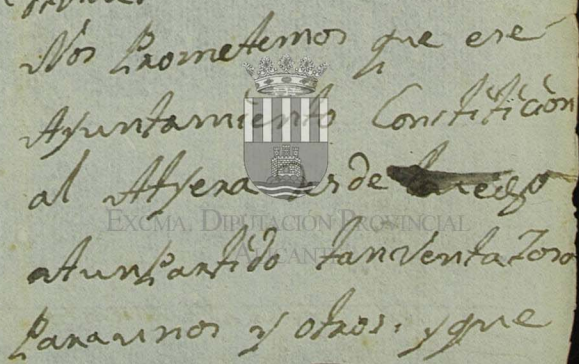 Nos Prometemos que ese
Ayuntamiento Constiticion
al Atyera desde luego
atunPartido tanventaZoso
Paraunos y otros. yque
EXCMA. DIPUTACIÓN PROVINCIAL
ALICANTE